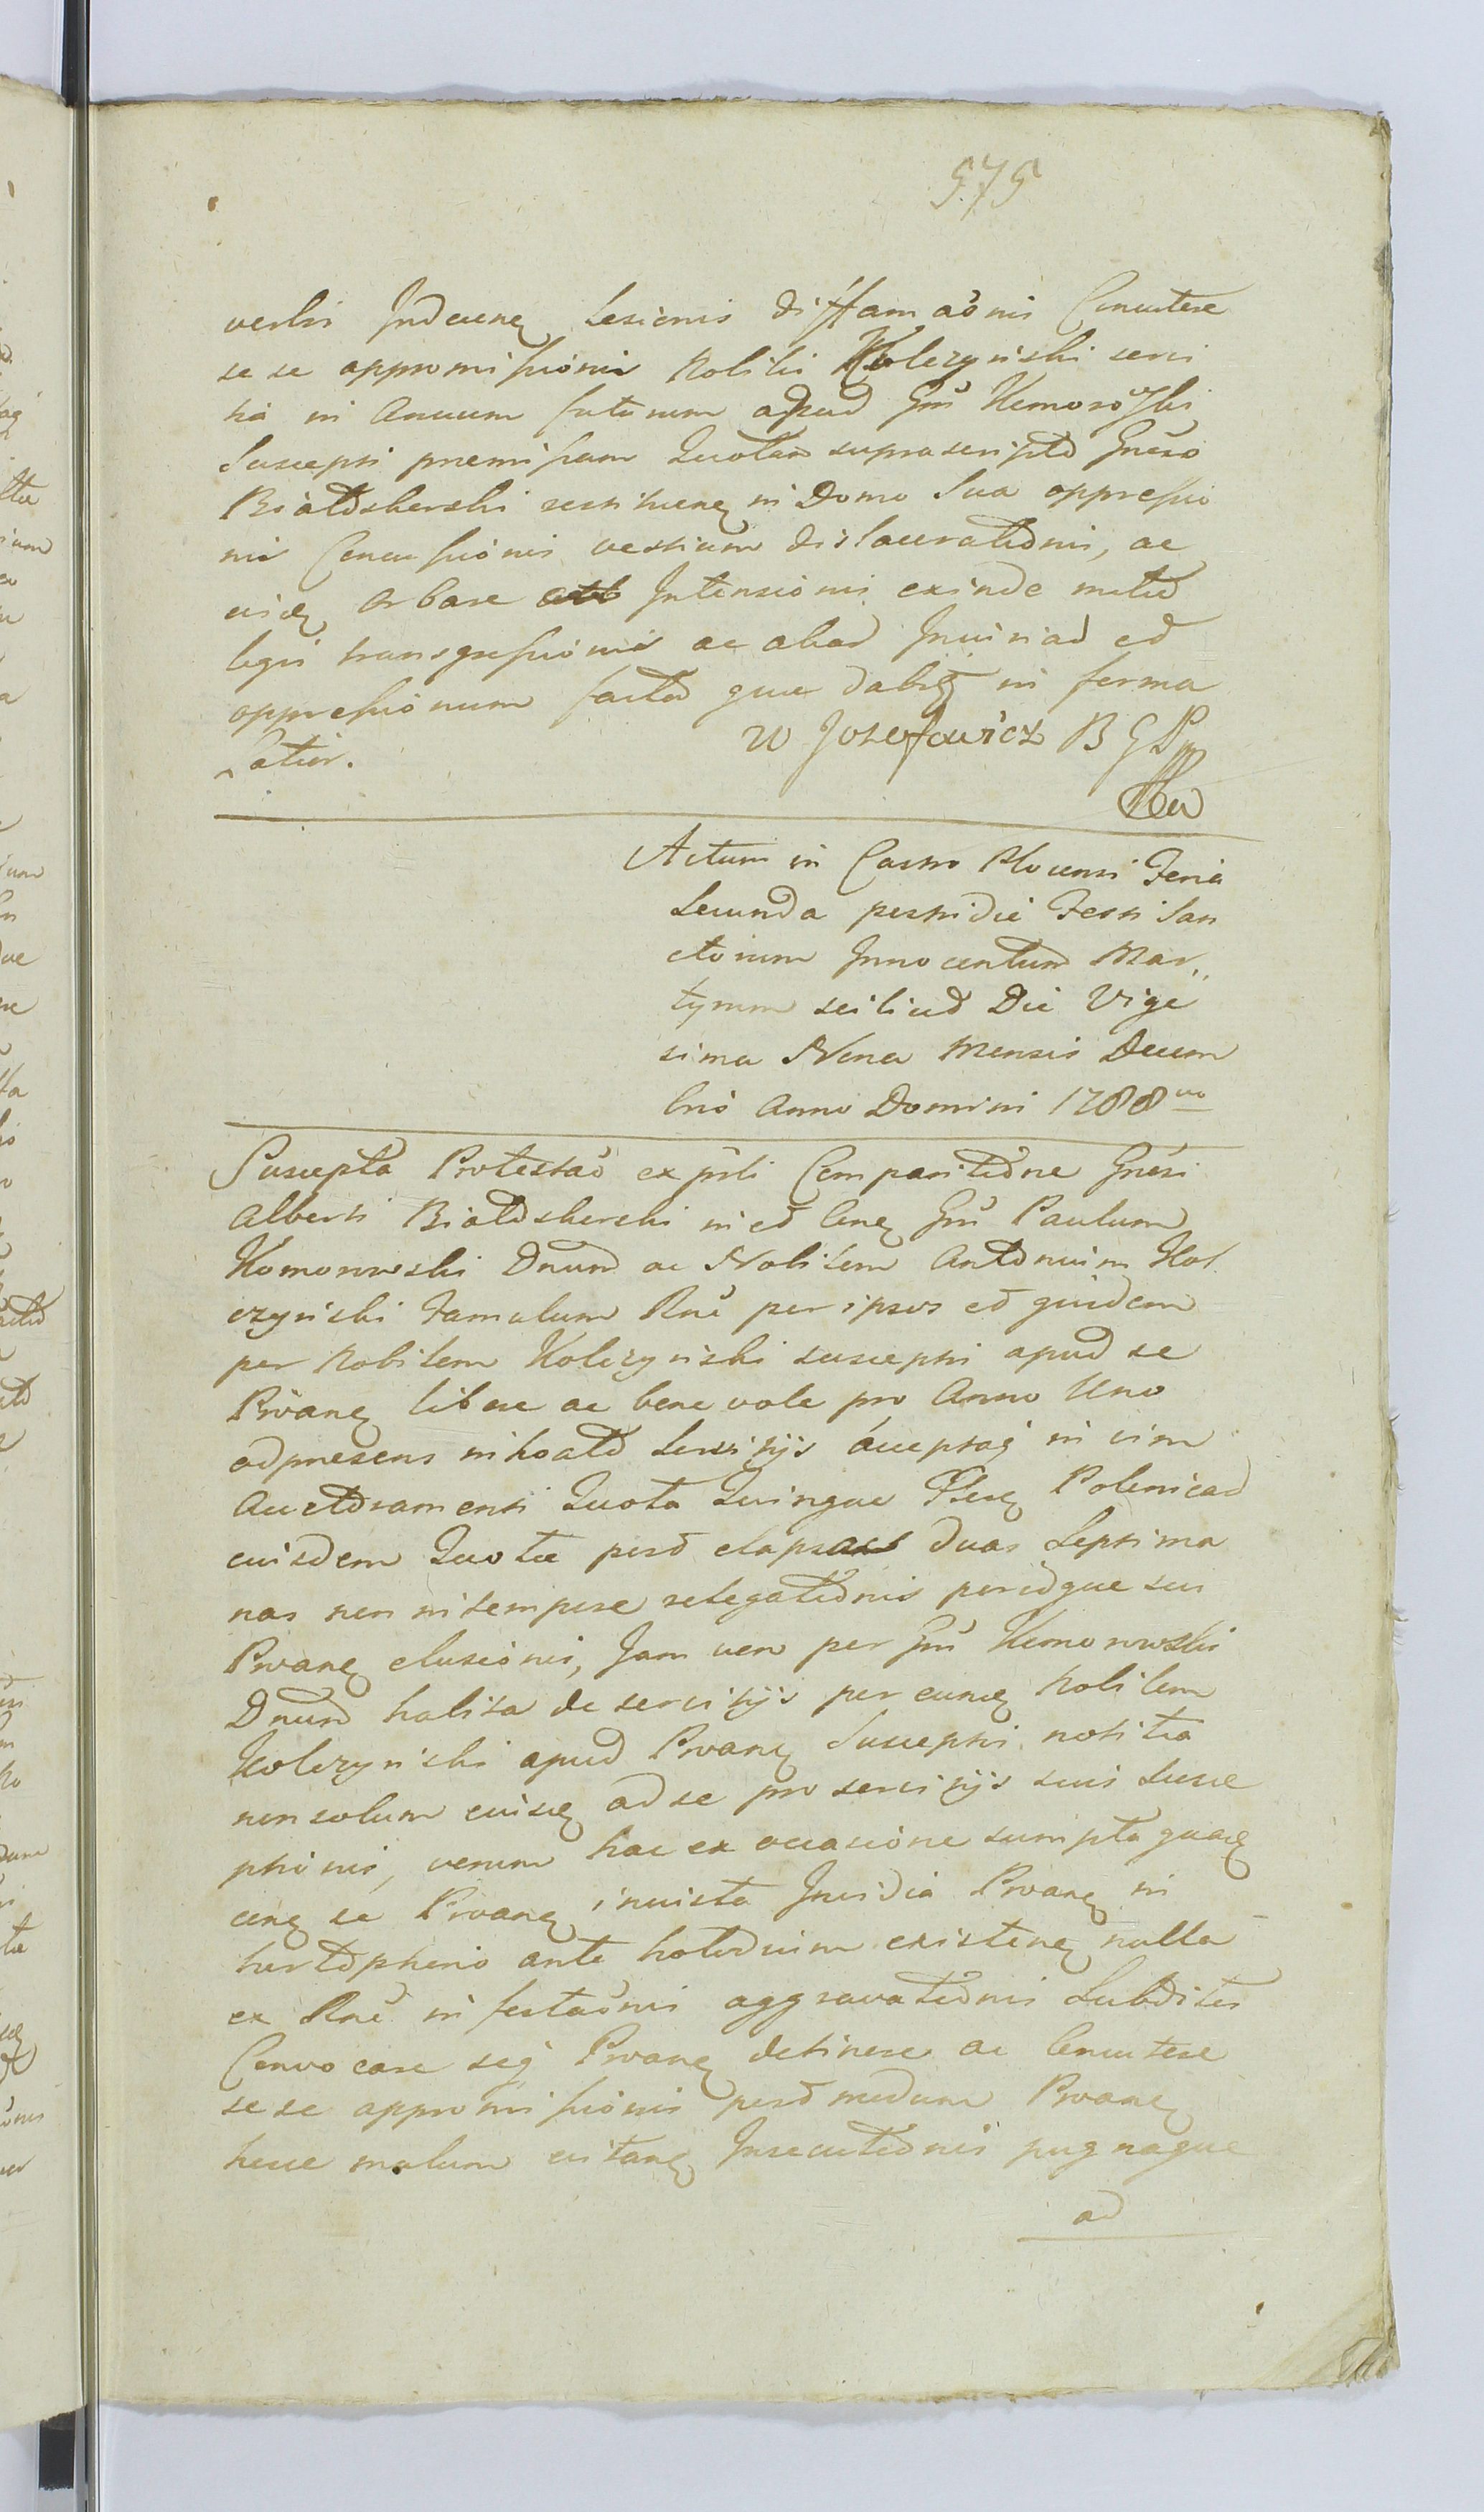 575
verbis Indecenq Lesionis diffamaōnis Concutere
sese appromissionis Nobilis Kolczynski servi
tia in Annum futurum apud Gm̄ Komorōski
Suscepti premissam Quotam suprascripto Gn̄eso
Białoskorski restituenq in Domo Sua oppressio
nis Concussionis vestium dislacerationis, ac
eidq Arbare Intensionis exinde metus
legis transgressionis ac alias Iniurias et
oppressionum factas quae dabitᵣ in forma
Latiori.
W Josefowicz B G P mp
Actum in Castro Plocensi Feria
Secunda postridie Festi San
ctorum Innocentum Mar„
tyrum scilicet Die Vige
sima Nona Mensis Decem
bris Anno Domini 1788vo
Suscepta Protestaō ex pn̄li Comparitione Gn̄osi
Alberti Białoskorski in et Conq Gm̄ Paulum
Komorowski Dnum ac Nobilem Antonium Kol
czynski Famulum Rn̄e per ipsos et quidem
per Nobilem Kolczynski suscepti apud se
Proanq libere ac benevole pro Anno Uno
adpresens inhoato Servitijs acceptaq in vim
Auctoramenti Quota Quinque Flenq Polonicas
cuisdem Quotae post elapsas duas Septima
nas non intempore relegationis perutque sui
Proanq elusionis, Jam vero per Gm̄ Komorowski
Dnum habita de servitijs per eunq Nobilem
Kolczynski apud Proanq Suscepti notitia
non solum eiusq ad se pro servitijs suis Susce
ptionis, verum hac ex occasione sumpta quaq
cunq se Proanq iniusta Invidia Proanq in
hortophorio ante hatorium existenq nulla
ex Rn̄e infestaōnis aggravationis Subditos
Convocare seq Proanq detinere ac Concutere
sese appromissionis post modum Proanq
hocce malum evitanq Insecutionis pugnaque
ad